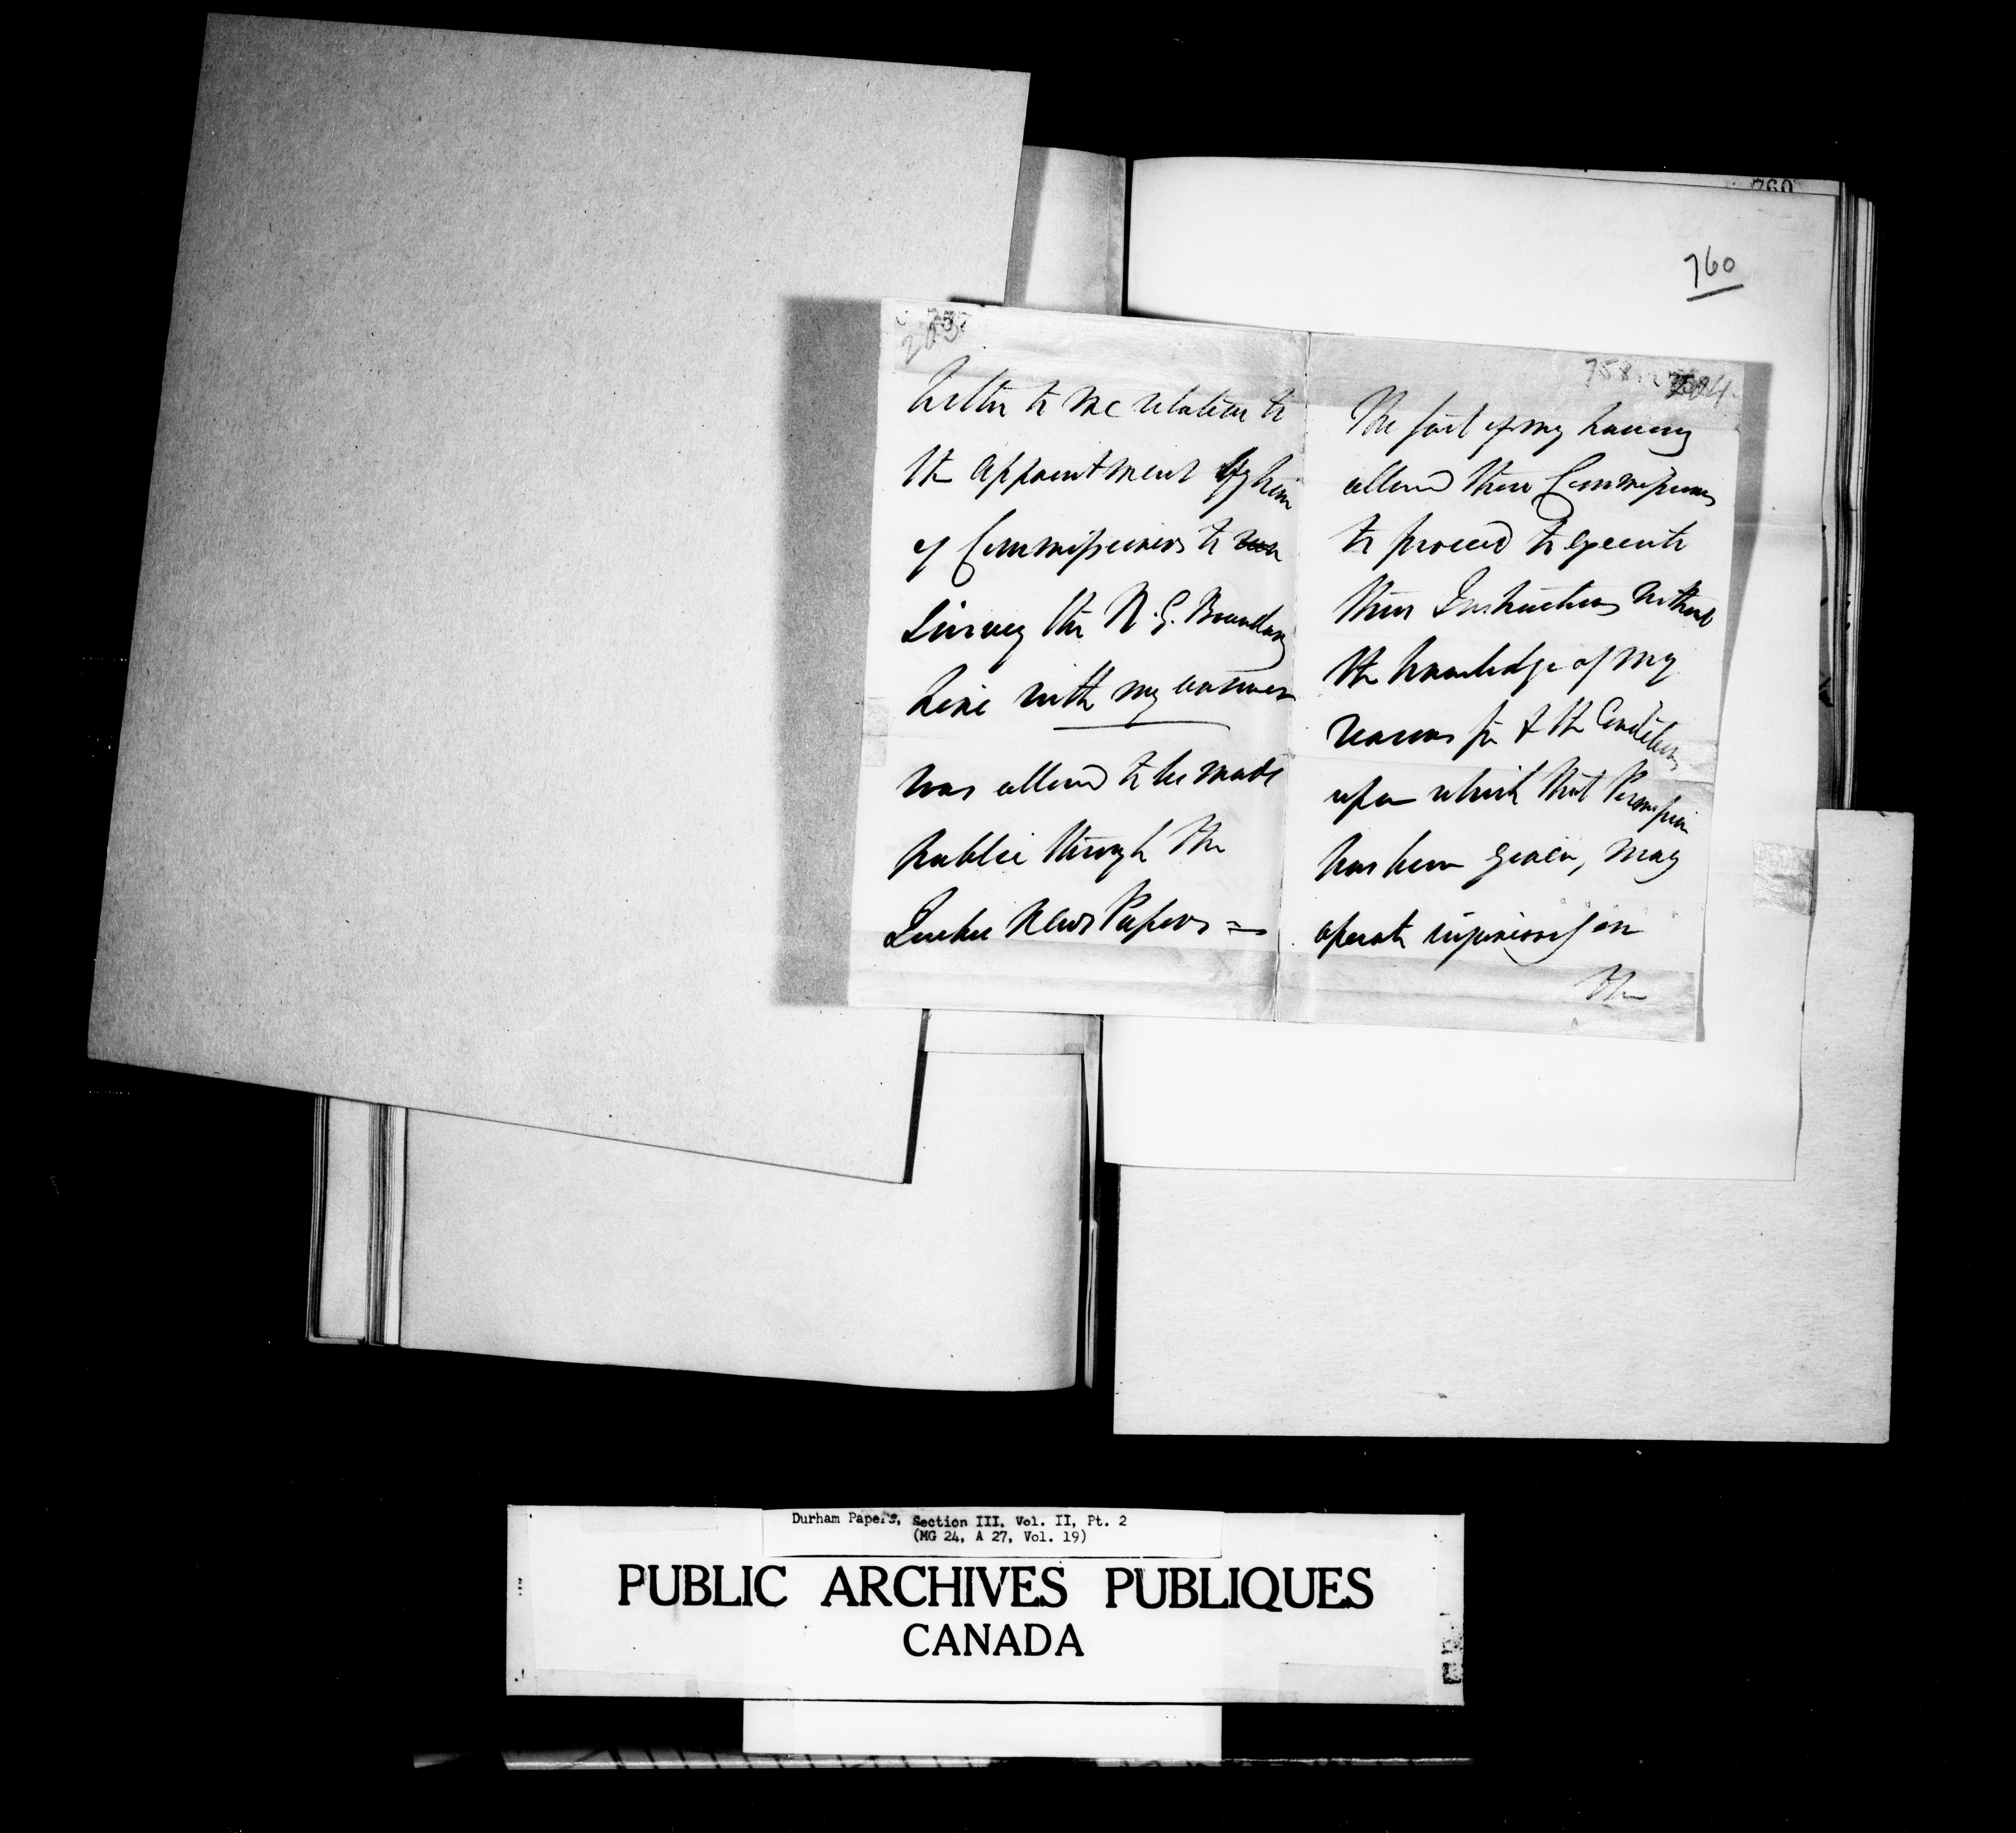 760
760
757
203
Letter to me relation to
the appointment by him
of Commissioners to
Survey the N.E. Boundary
Line with my answer
was allowed to be made
public through the
Quebec News Papers =
758
204
The fact of my having
allowed these Commissioners
to proceed to execute
their Instructions without
the knowledge of my
reasons for & the Conditions
upon which that Permission
has been given, may
operate injuriously on
the
Durham Papers, Section III, Vol. II, Pt. 2
(MG 24, A 27, Vol. 19)
PUBLIC ARCHIVES PUBLIQUES
CANADA